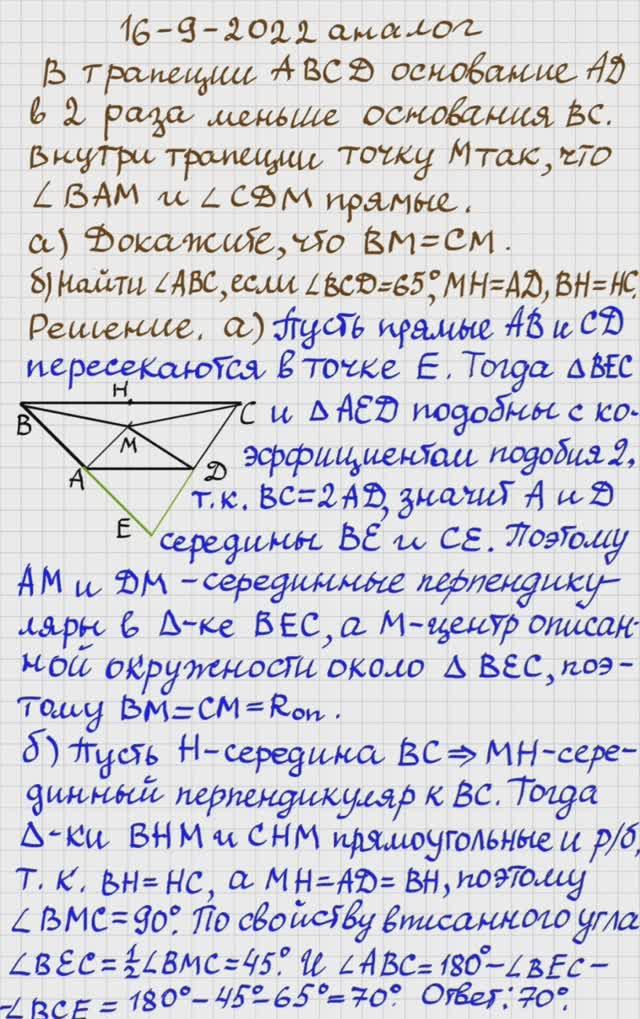 16-9-2022 аналог
В трапеции ABCD основание AD
в 2 раза меньше основания BC.
Внутри трапеции точку M так, что
∠BAM и ∠CDM прямые.
а) Докажите, что BM=CM.
б) Найти ∠ABC, если ∠BCD=65°, MH=AD, BH=HC.
Решение. а) Пусть прямые AB и CD
пересекаются в точке E. Тогда ΔBEC
H
B
C
M
A
D
E
и ΔAED подобны с ко-
эффициентом подобия 2,
т.к. BC=2AD, значит A и D
середины BE и CE. Поэтому
AM и DM – серединные перпендику-
ляры в Δ-ке BEC, а M-центр описан-
ной окружности около ΔBEC, поэ-
тому BM=CM=Rоп.
б) Пусть H-середина BC ⇒ MH-сере-
динный перпендикуляр к BC. Тогда
Δ-ки BHM и CHM прямоугольные и р/б,
т.к. BH=HC, а MH=AD=BH, поэтому
∠BMC=90°. По свойству вписанного угла
∠BEC=½∠BMC=45°. И ∠ABC=180°-∠BEC-
-∠BCE=180°-45°-65°=70°. Ответ: 70°.